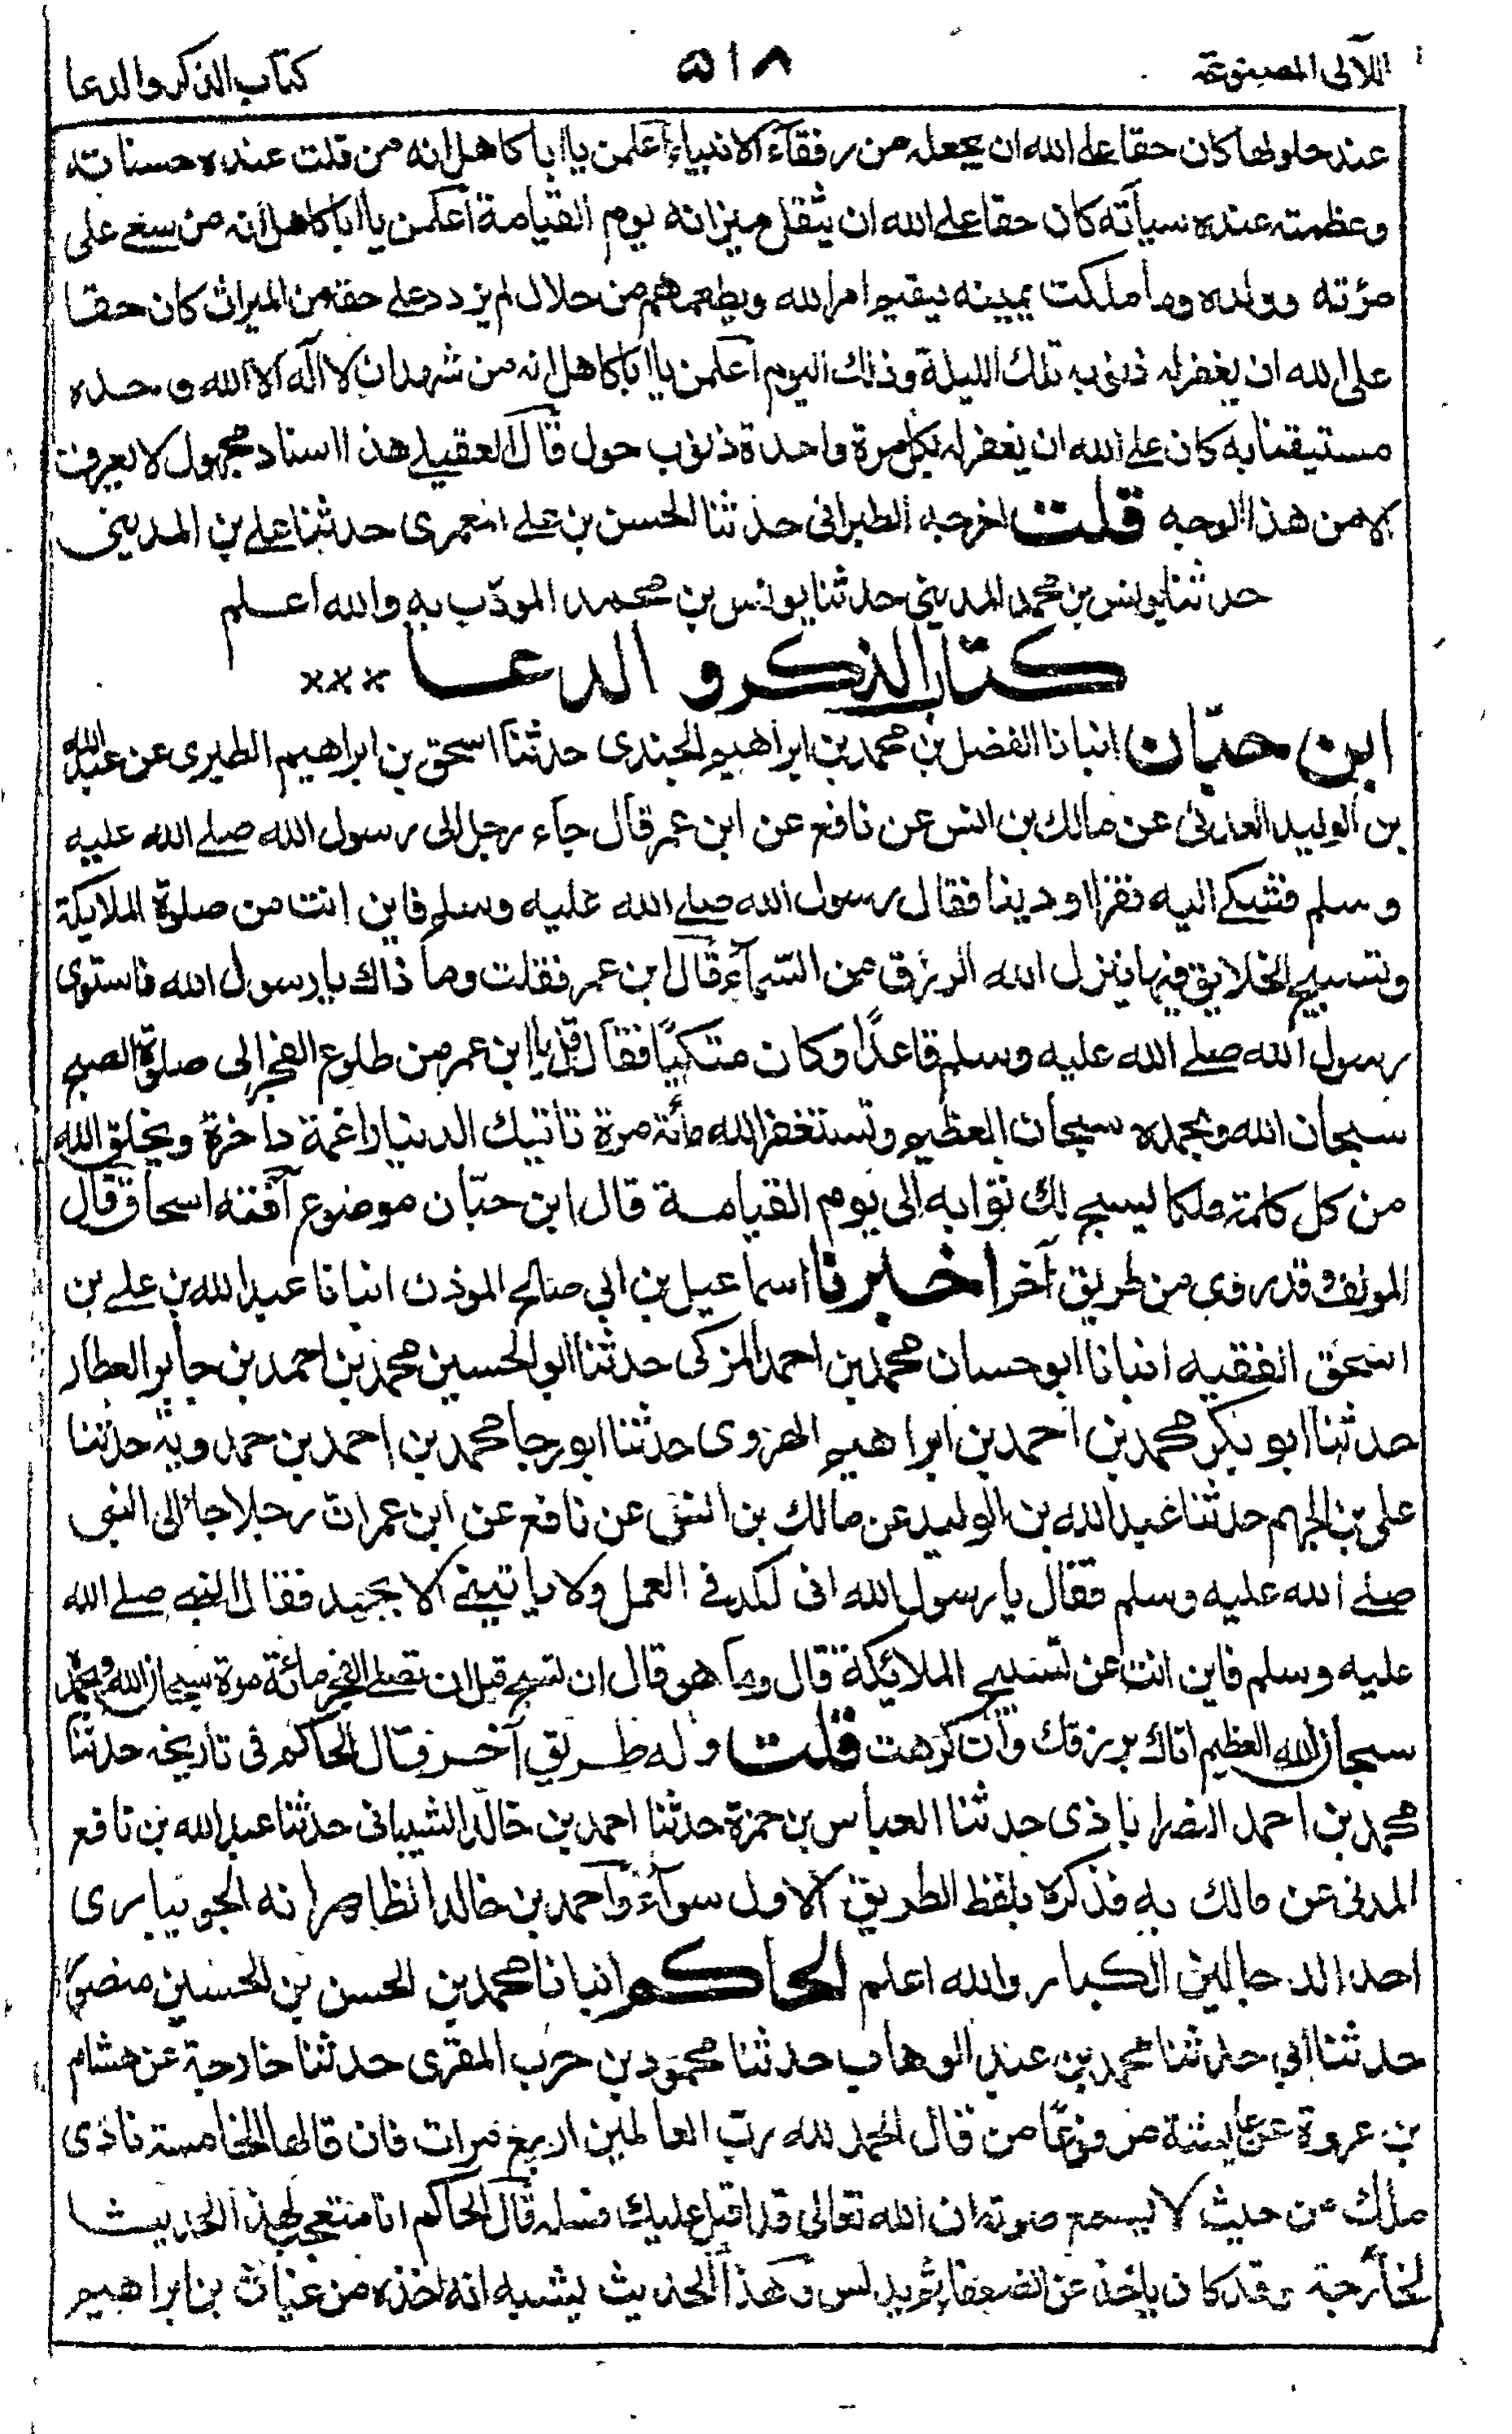 اللآلى المصنوعة ٥١٨ كتاب الذكر والدعا
عند حلولها كان حقا على الله ان يجعله من رفقآء الانبياء اعلمن يا ابا كاهل انه من قلت عنده حسناته
وعظمته عنده سيآته كان حقا على الله ان يثقل ميزانه يوم القيامة اعلمن يا ابا كاهل انه من سعى على
مرٔته وولده وما ملكت يمينه يقيم امر الله ويطعمهم من حلال لم يزدد على حقه من الميراث كان حقا
على الله ان يغفر له ذنوبه تلك الليلة وذلك اليوم اعلمن يا ابا كاهل انه من شهد ان لا اله الا الله وحده
مستيقنا به كان على الله ان يغفر له بكل مرة واحدة ذنوب حول قال العقيلى هذا اسناد مجهول لا يعرف
الا من هذا الوجه قلت اخرجه الطبرانى حدثنا الحسن بن على المعمرى حدثنا على بن المدينى
حدثنا يونس بن محمد المدينى حدثنا يونس بن محمد المودّب به والله اعلم
كتاب الذكر و الدعا ×××
ابن حبّان انبانا الفضل بن محمد بن ابراهيم الجندى حدثنا اسحق بن ابراهيم الطبرى عن عبد الله
بن الوليد العدنى عن مالك بن انس عن نافع عن ابن عمر قال جاء رجل الى رسول الله صلى الله عليه
وسلم فشكى اليه فقرا او دينا فقال رسول الله صلى الله عليه وسلم فاين انت من صلوة الملايكة
وتسبيح الخلايق فبها ينزل الله الرزق من السّمآء قال ابن عمر فقلت وما ذاك يا رسول الله فاستوى
رسول الله صلى الله عليه وسلم قاعدًا وكان متكيًا فقال قل يا ابن عمر من طلوع الفجر الى صلوة الصبح
سبحان الله وبحمده سبحان العظيم وتستغفر الله مائة مرة تاتيك الدنيا راغمة داخرة ويخلق الله
من كل كلمة ملكا يسبح لك ثوابه الى يوم القيامة قال ابن حبّان موضوع آفته اسحاق قال
المولف وقد روى من طريق آخر اخبرنا اسماعيل بن ابي صالح الموذن انبانا عبد الله بن على بن
اسحق الفقيه انبانا ابو حسان محمد بن احمد المزكى حدثنا ابو الحسين محمد بن احمد بن جابر العطار
حدثنا ابو بكر محمد بن احمد بن ابراهيم الهروى حدثنا ابو رجا محمد بن احمد بن حمدويه حدثنا
على بن الجهم حدثنا عبد الله بن الوليد عن مالك بن انس عن نافع عن ابن عمر ان رجلا جاء الى النبى
صلى الله عليه وسلم فقال يا رسول الله انى لكد فى العمل ولا ياتينى الا بجهد فقال النبى صلى الله
عليه وسلم فاين انت عن تسبيح الملائكة قال وما هو قال ان تسبح قبل ان تصلى الفجر مائة مرة سبحان الله وبحمده
سبحان الله العظيم اتاك برزقك وان كرهت قلت وله طريق آخر قال الحاكم فى تاريخه حدثنا
محمد بن احمد النصراباذى حدثنا العباس بن حمزة حدثنا احمد بن خالد الشيبانى حدثنا عبد الله بن نافع
المدنى عن مالك به فذكره بلفظ الطريق الاول سوآء واحمد بن خالد الظاهر انه الجويبارى
احد الدجالين الكبار والله اعلم الحاكم انبانا محمد بن الحسن بن الحسين منصور
حدثنا ابي حدثنا محمد بن عبد الوهاب حدثنا محمود بن حرب المقرى حدثنا خارجة عن هشام
بن عروة عن عايشة مرفوعًا من قال الحمد لله ربّ العالمين اربع مرات فان قالها الخامسة نادى
ملك من حيث لا يسمع صوته ان الله تعالى قد اقبل عليك فسله قال الحاكم انا متعجب لهذا الحديث
لخارجة وقد كان ياخذ عن الضعفا ثم يدلس وهذا الحديث يشبه انه اخذه من غياث بن ابراهيم